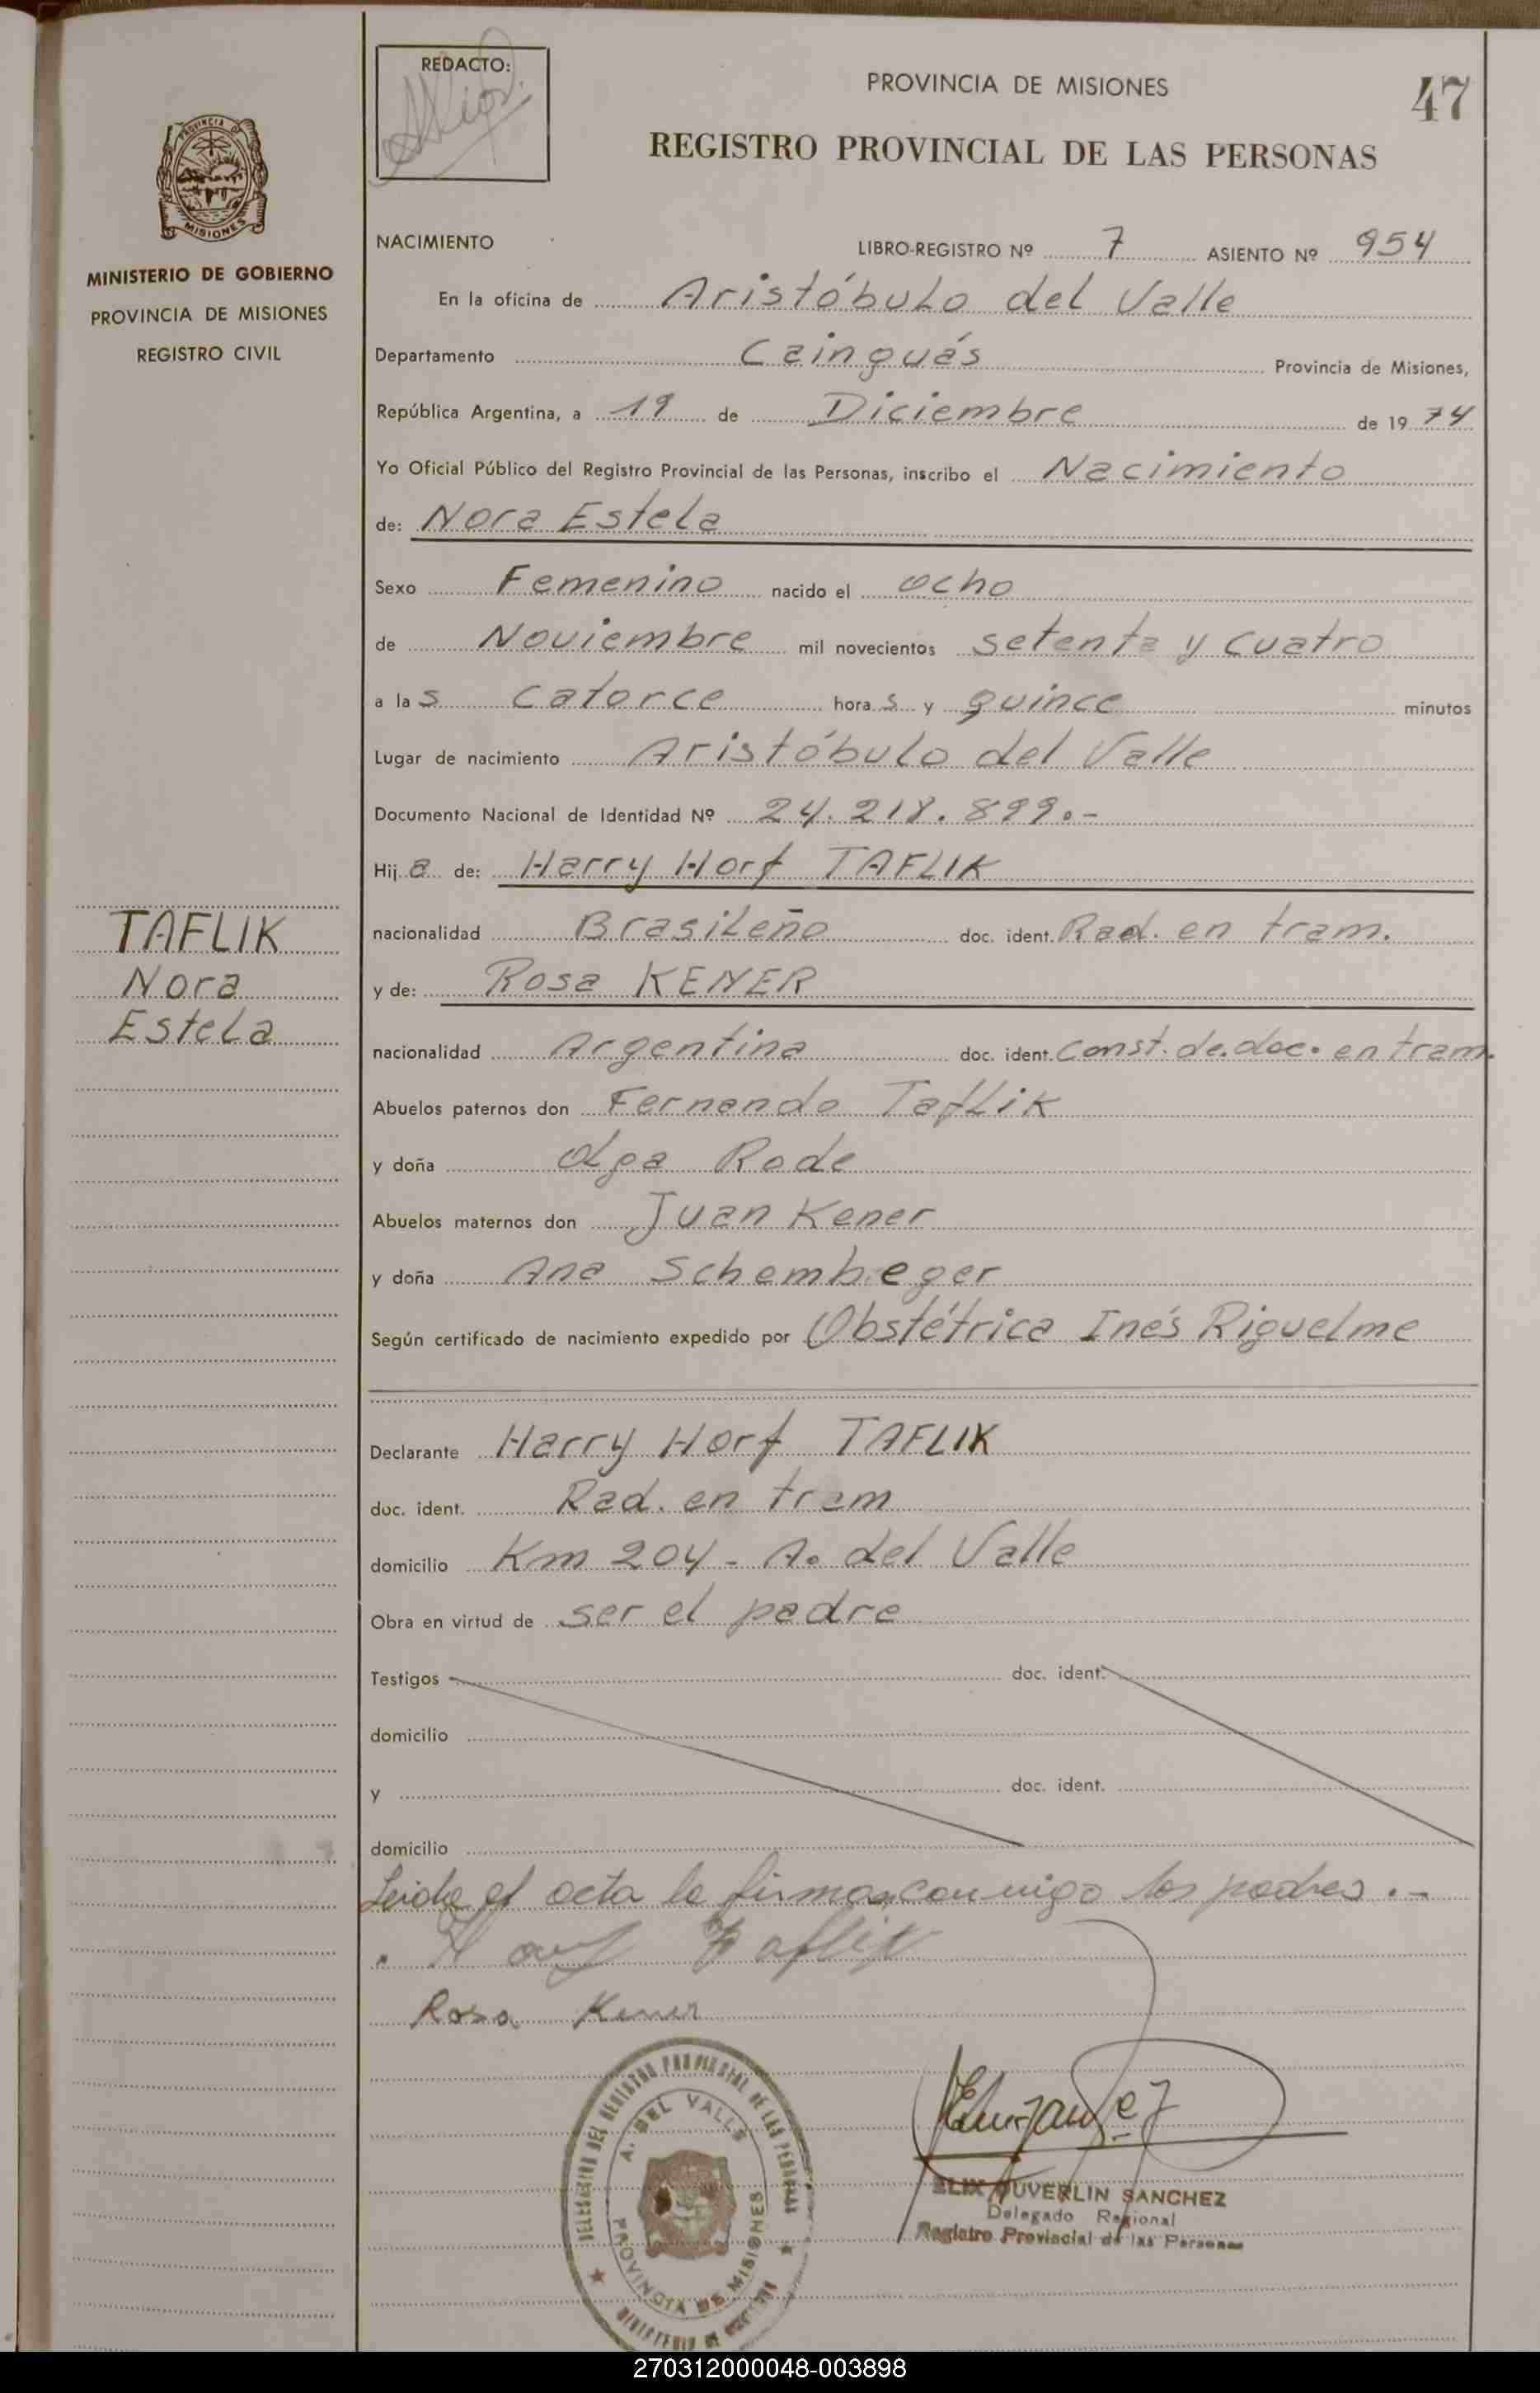 REDACTO:
PROVINCIA DE MISIONES
47
REGISTRO PROVINCIAL DE LAS PERSONAS
PROVINCIA DE
MISIONES
MINISTERIO DE GOBIERNO
PROVINCIA DE MISIONES
REGISTRO CIVIL
NACIMIENTO
LIBRO-REGISTRO Nº 7 ASIENTO Nº 954
En la oficina de Aristóbulo del Valle
Departamento Cainguás Provincia de Misiones,
República Argentina, a 19 de Diciembre de 19 74
Yo Oficial Público del Registro Provincial de las Personas, inscribo el Nacimiento
de: Nora Estela
Sexo Femenino nacido el ocho
de Noviembre mil novecientos setenta y cuatro
a las catorce horas y quince minutos
Lugar de nacimiento Aristóbulo del Valle
Documento Nacional de Identidad Nº 24.218.899.-
Hija de: Harry Horf TAFLIK
nacionalidad Brasileño doc. ident. Rad. en tram.
y de: Rosa KENER
nacionalidad Argentina doc. ident. Const. de doc. en tram.
TAFLIK
Nora
Estela
Abuelos paternos don Fernando Taflik
y doña Olga Rode
Abuelos maternos don Juan Kener
y doña Ana Schembeger
Según certificado de nacimiento expedido por Obstétrica Inés Riquelme
Declarante Harry Horf TAFLIK
doc. ident. Rad. en tram
domicilio Km 204 - A. del Valle
Obra en virtud de ser el padre
Testigos doc. ident.
domicilio
y doc. ident.
domicilio
Leida el acta la firman conmigo los padres.-
Harry Taflik
Rosa Kener
DELEGACION DEL REGISTRO PROVINCIAL DE LAS PERSONAS
A. DEL VALLE
PROVINCIA DE MISIONES
MINISTERIO DE GOBIERNO
DUVERLIN SANCHEZ
Delegado Regional
Registro Provincial de las Personas
270312000048-003898